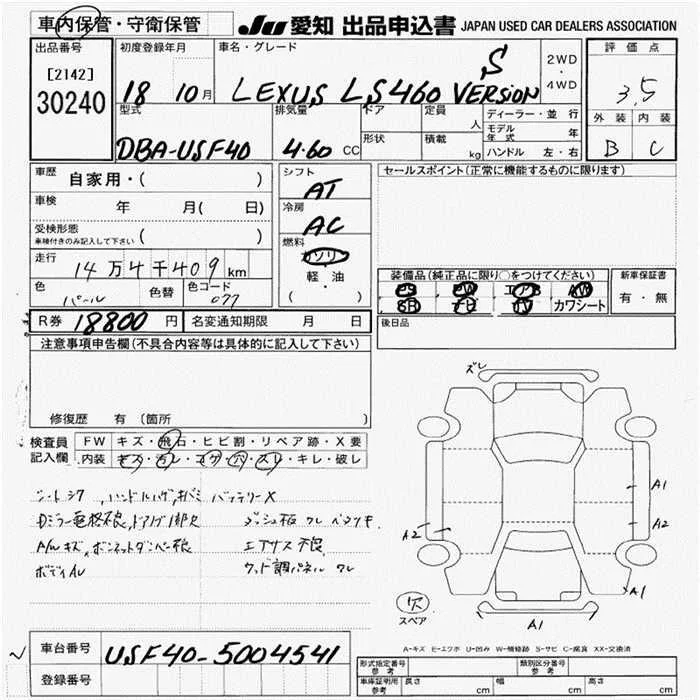 車内保管・守衛保管
JU 愛知 出品申込書 JAPAN USED CAR DEALERS ASSOCIATION
出品番号 初度登録年月 車名・グレード 2WD・4WD 評価点
[2142]
30240 18 10月 LEXUS LS460 S VERSION 3.5
型式 排気量 ドア 定員 人 ディーラー・並行 外装 内装
形状 積載 kg モデル年式 年
DBA-USF40 4.60 CC ハンドル 左・右 B C
車歴 自家用・( ) シフト AT セールスポイント(正常に機能するものに限ります)
車検 年 月( 日) 冷房 AC
受検形態 ( )
車検付きのみ記入して下さい
燃料 ガソリン
走行 14万4千409km 軽・油
( )
装備品(純正品に限り○をつけてください) 新車保証書
PS PW エアB AW
SR ナビ TV カワシート 有・無
色 パール 色替 色コード 077
R券 18800 円 名変通知期限 月 日 後日品
注意事項申告欄(不具合内容等は具体的に記入して下さい)
修復歴 有 (箇所 )
検査員 FW キズ・飛石・ヒビ割・リペア跡・X要
記入欄 内装 キズ・ヨレ・コゲ・穴・スレ・キレ・破レ
ズレ
A1
A2
A2
A1
A1
バッテリーX
エアサス不良
A/wキズ
欠
スペア
A-キズ E-エクボ U-凹み W-補修跡 S-サビ C-腐食 XX-交換済
車台番号 USF40-5004541
登録番号
形式指定番号 参考 類別区分番号 参考
車庫証明用 参考 長さ cm 幅 cm 高さ cm